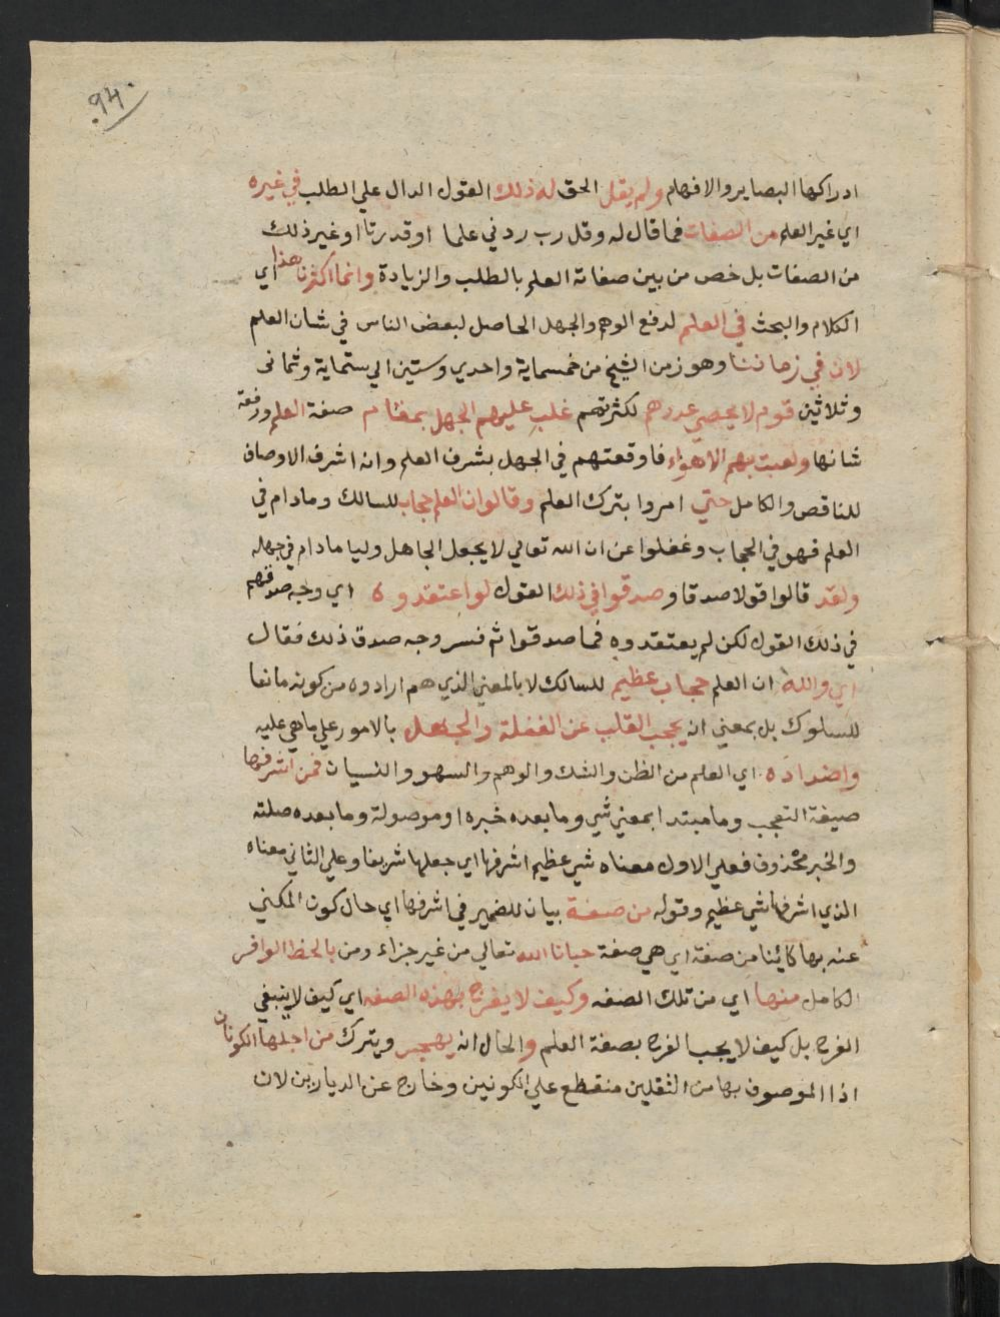 94
ادراكها البصاير والافهام ولم يقل الحق له ذلك القول الدال علي الطلب في غيره
اي غير العلم من الصفات فما قال له وقل رب زدني علما او قدرتا او غير ذلك
من الصفات بل خص من بين صفاته العلم بالطلب والزيادة وانما اكثرنا هذا اي
الكلام والبحث في العلم لدفع الوهم والجهل الحاصل لبعض الناس في شان العلم
لان في زماننا وهو زمن الشيخ من خمسماية واحدي وستين الي ستماية وثمانى
وثلاثين قوم لا يحصي عددهم لكثرتهم غلب عليهم الجهل بمقام صفة العلم ورفعة
شانها ولعبت بهم الاهواء فاوقعتهم في الجهل بشرف العلم وانه اشرف الاوصاف
للناقص والكامل حتي امروا بترك العلم وقالوا ان العلم حجاب للسالك ومادام في
العلم فهو في الحجاب وغفلوا عن ان الله تعالي لا يجعل الجاهل وليا مادام في جهله
ولقد قالوا قولا صدقا وصدقوا في ذلك القول لو اعتقدوه اي وجه صدقهم
في ذلك القول لكن لم يعتقدوه فما صدقوا ثم فسر وجه صدق ذلك فقال
اي والله ان العلم حجاب عظيم للسالك لا بالمعني الذي هم ارادوه من كونه مانعا
للسلوك بل بمعني انه يحجب القلب عن الغفلة والجهل بالامور علي ماهي عليه
واضداده اي العلم من الظن والشك والوهم والسهو والنسيان فمن اشرفها
صيغة التعجب وما مبتدا بمعني شي وما بعده خبره او موصولة وما بعده صلته
والخبر محذوف فعلي الاول معناه شي عظيم اشرفها اي جعلها شريفا وعلي الثاني معناه
الذي اشرفها شي عظيم وقوله من صفة بيان للضمير في اشرفها اي حال كون المكني
عنه بها كائنا من صفة اي هي صفة حبانا الله تعالي من غير جزاء ومن بالحظ الوافر
الكامل منها اي من تلك الصفه وكيف لا يفرح بهذه الصفه اي كيف لا ينبغي
الفرح بل كيف لا يجب الفرح بصفة العلم والحال انه يهجر ويترك من اجلها الكونان
اذا الموصوف بها من الثقلين منقطع علي الكونين وخارج عن الديارين لان